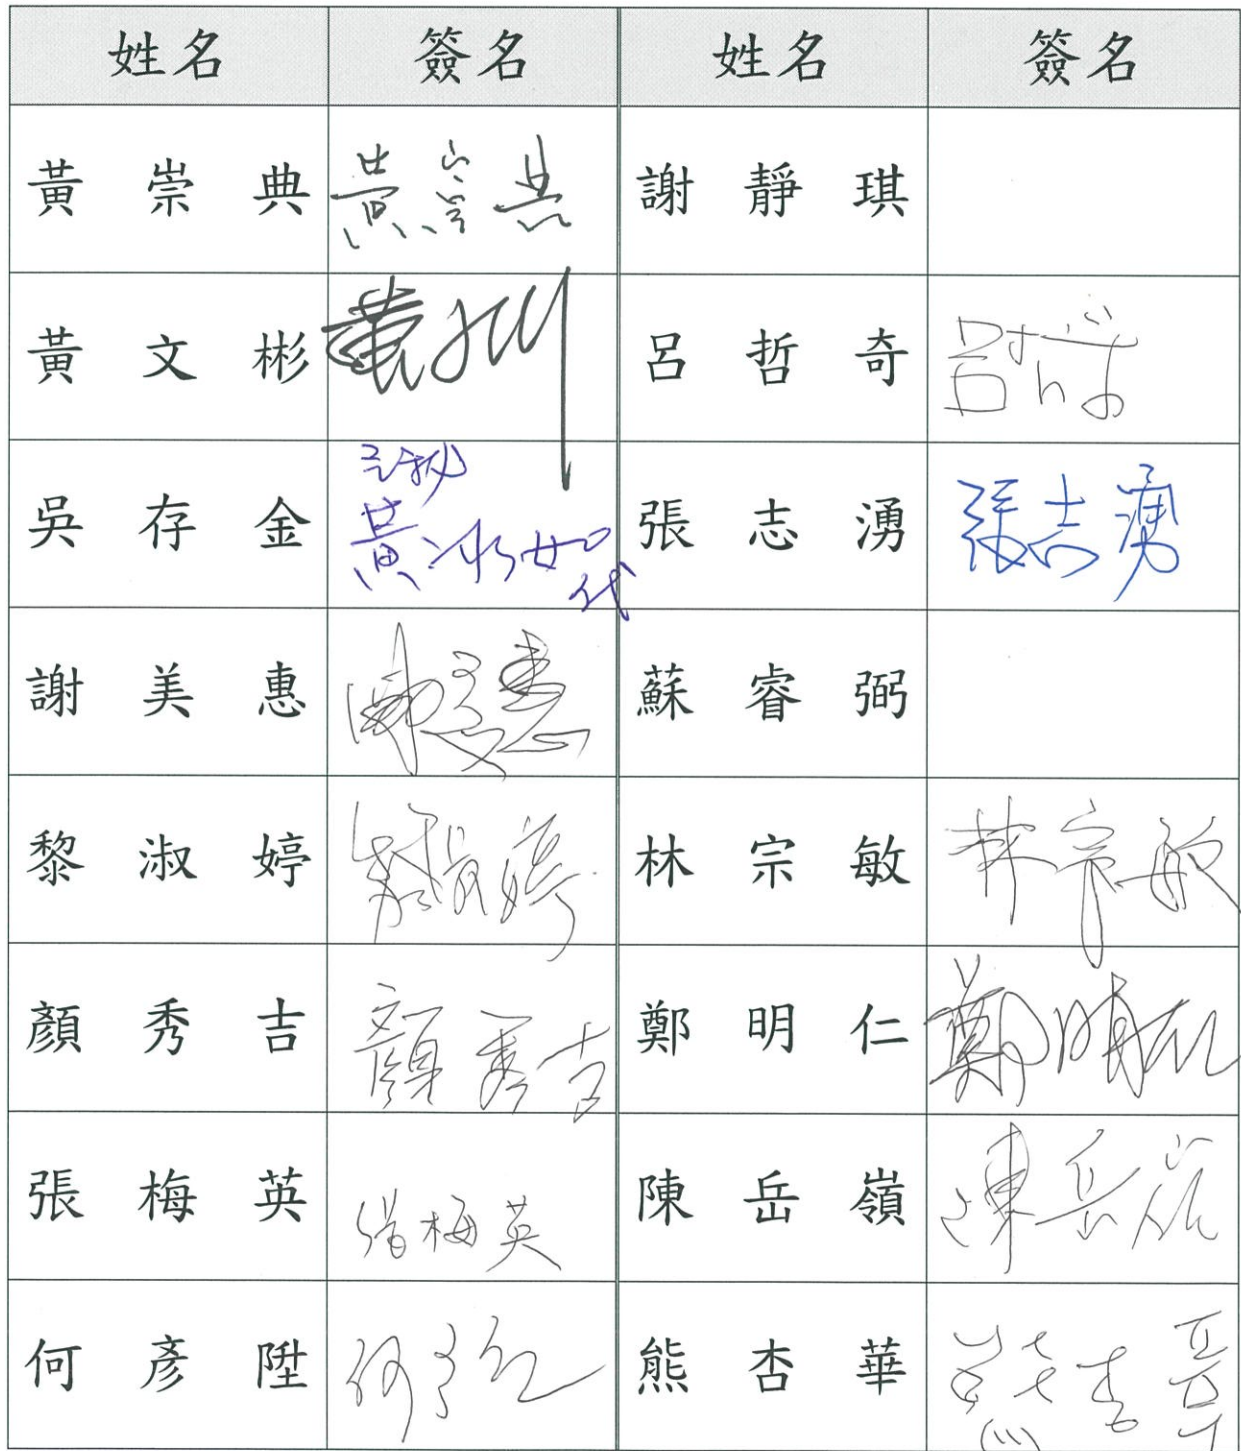 姓名 簽名 姓名 簽名
黃崇典 黃崇典 謝靜琪
黃文彬 黃 呂哲奇 呂哲奇
吳存金 黃冰如代 張志湧 張志湧
謝美惠 謝美惠 蘇睿弼
黎淑婷 黎淑婷 林宗敏 林宗敏
顏秀吉 顏秀吉 鄭明仁 鄭明仁
張梅英 張梅英 陳岳嶺 陳岳嶺
何彥陞 何彥陞 熊杏華 熊杏華